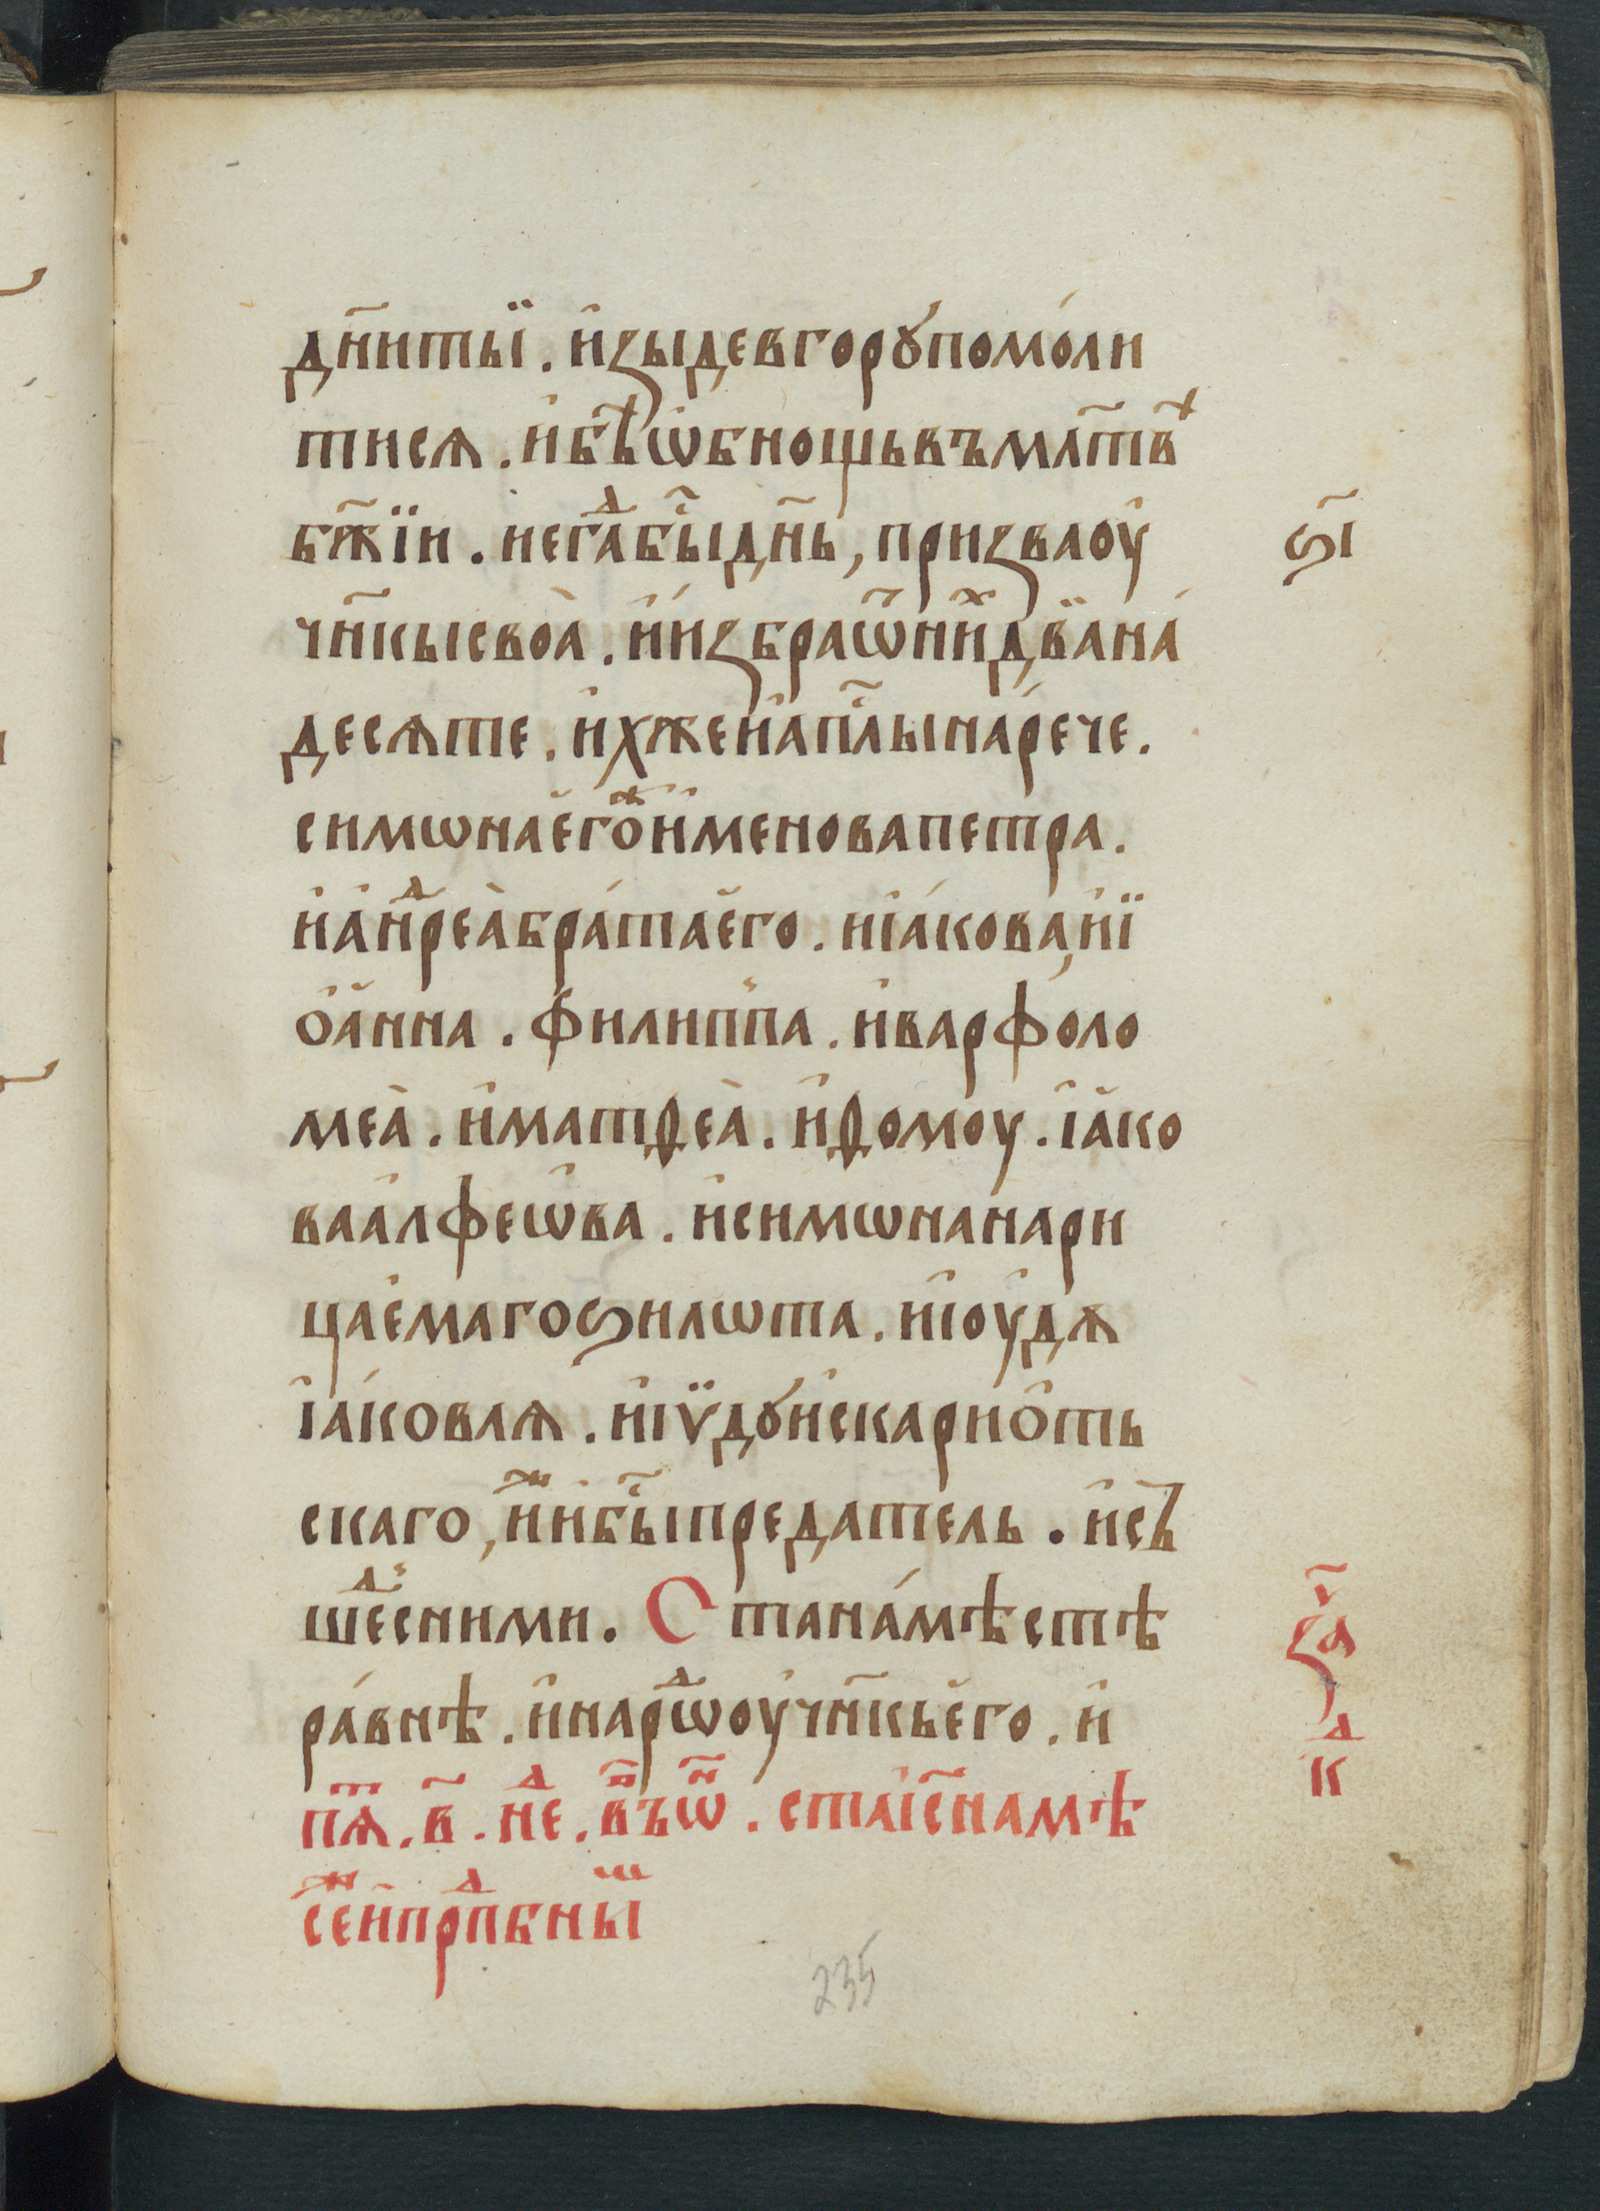 дн҃итӹ . и҆зыдевгорꙋ́помо́ли
тисѧ . и҆бѣ҃ѡ҆бнощьвъмл҃твⷯ
бж҃їи . иегⷣабы҃дн҃ь, призваоу҆
чн҃кысвоа̀ . и҆и́збраѿниⷯдв̈ана́
десѧте . и҆хжеи҆ап҃лынаре́че .
симѡнаегоⷤименовапетра .
и҆а҆нⷣреа̀бра́тае҆го . иіа́кова, иї
о҆а҆нна . филиппа . и҆варфоло
меа̀ . и҆матѳеа̀ . и҆ѳомоу . іа҆ко
ваа҆лфеѡ҆ва . и҆симѡнанари
ца́емагоѕилѡта . и҆іоу҆дѧ
іа́ковлѧ . и҆іѵ̈дꙋи҆скарио҆ть
скаго, и҆ⷤибы҃предатель . и҆съ
шеⷣсними . Станамѣстѣ
ра́внѣ . и҆нароⷣѿоу҆чн҃къе҆го . и҆
пѧⷮ . в҃ . неⷣ . в҃ъѿ . стаіс҃намѣ
сеⷤи҆прпⷣбныⷲ
ѕ҃і
за҃
кⷣ
235